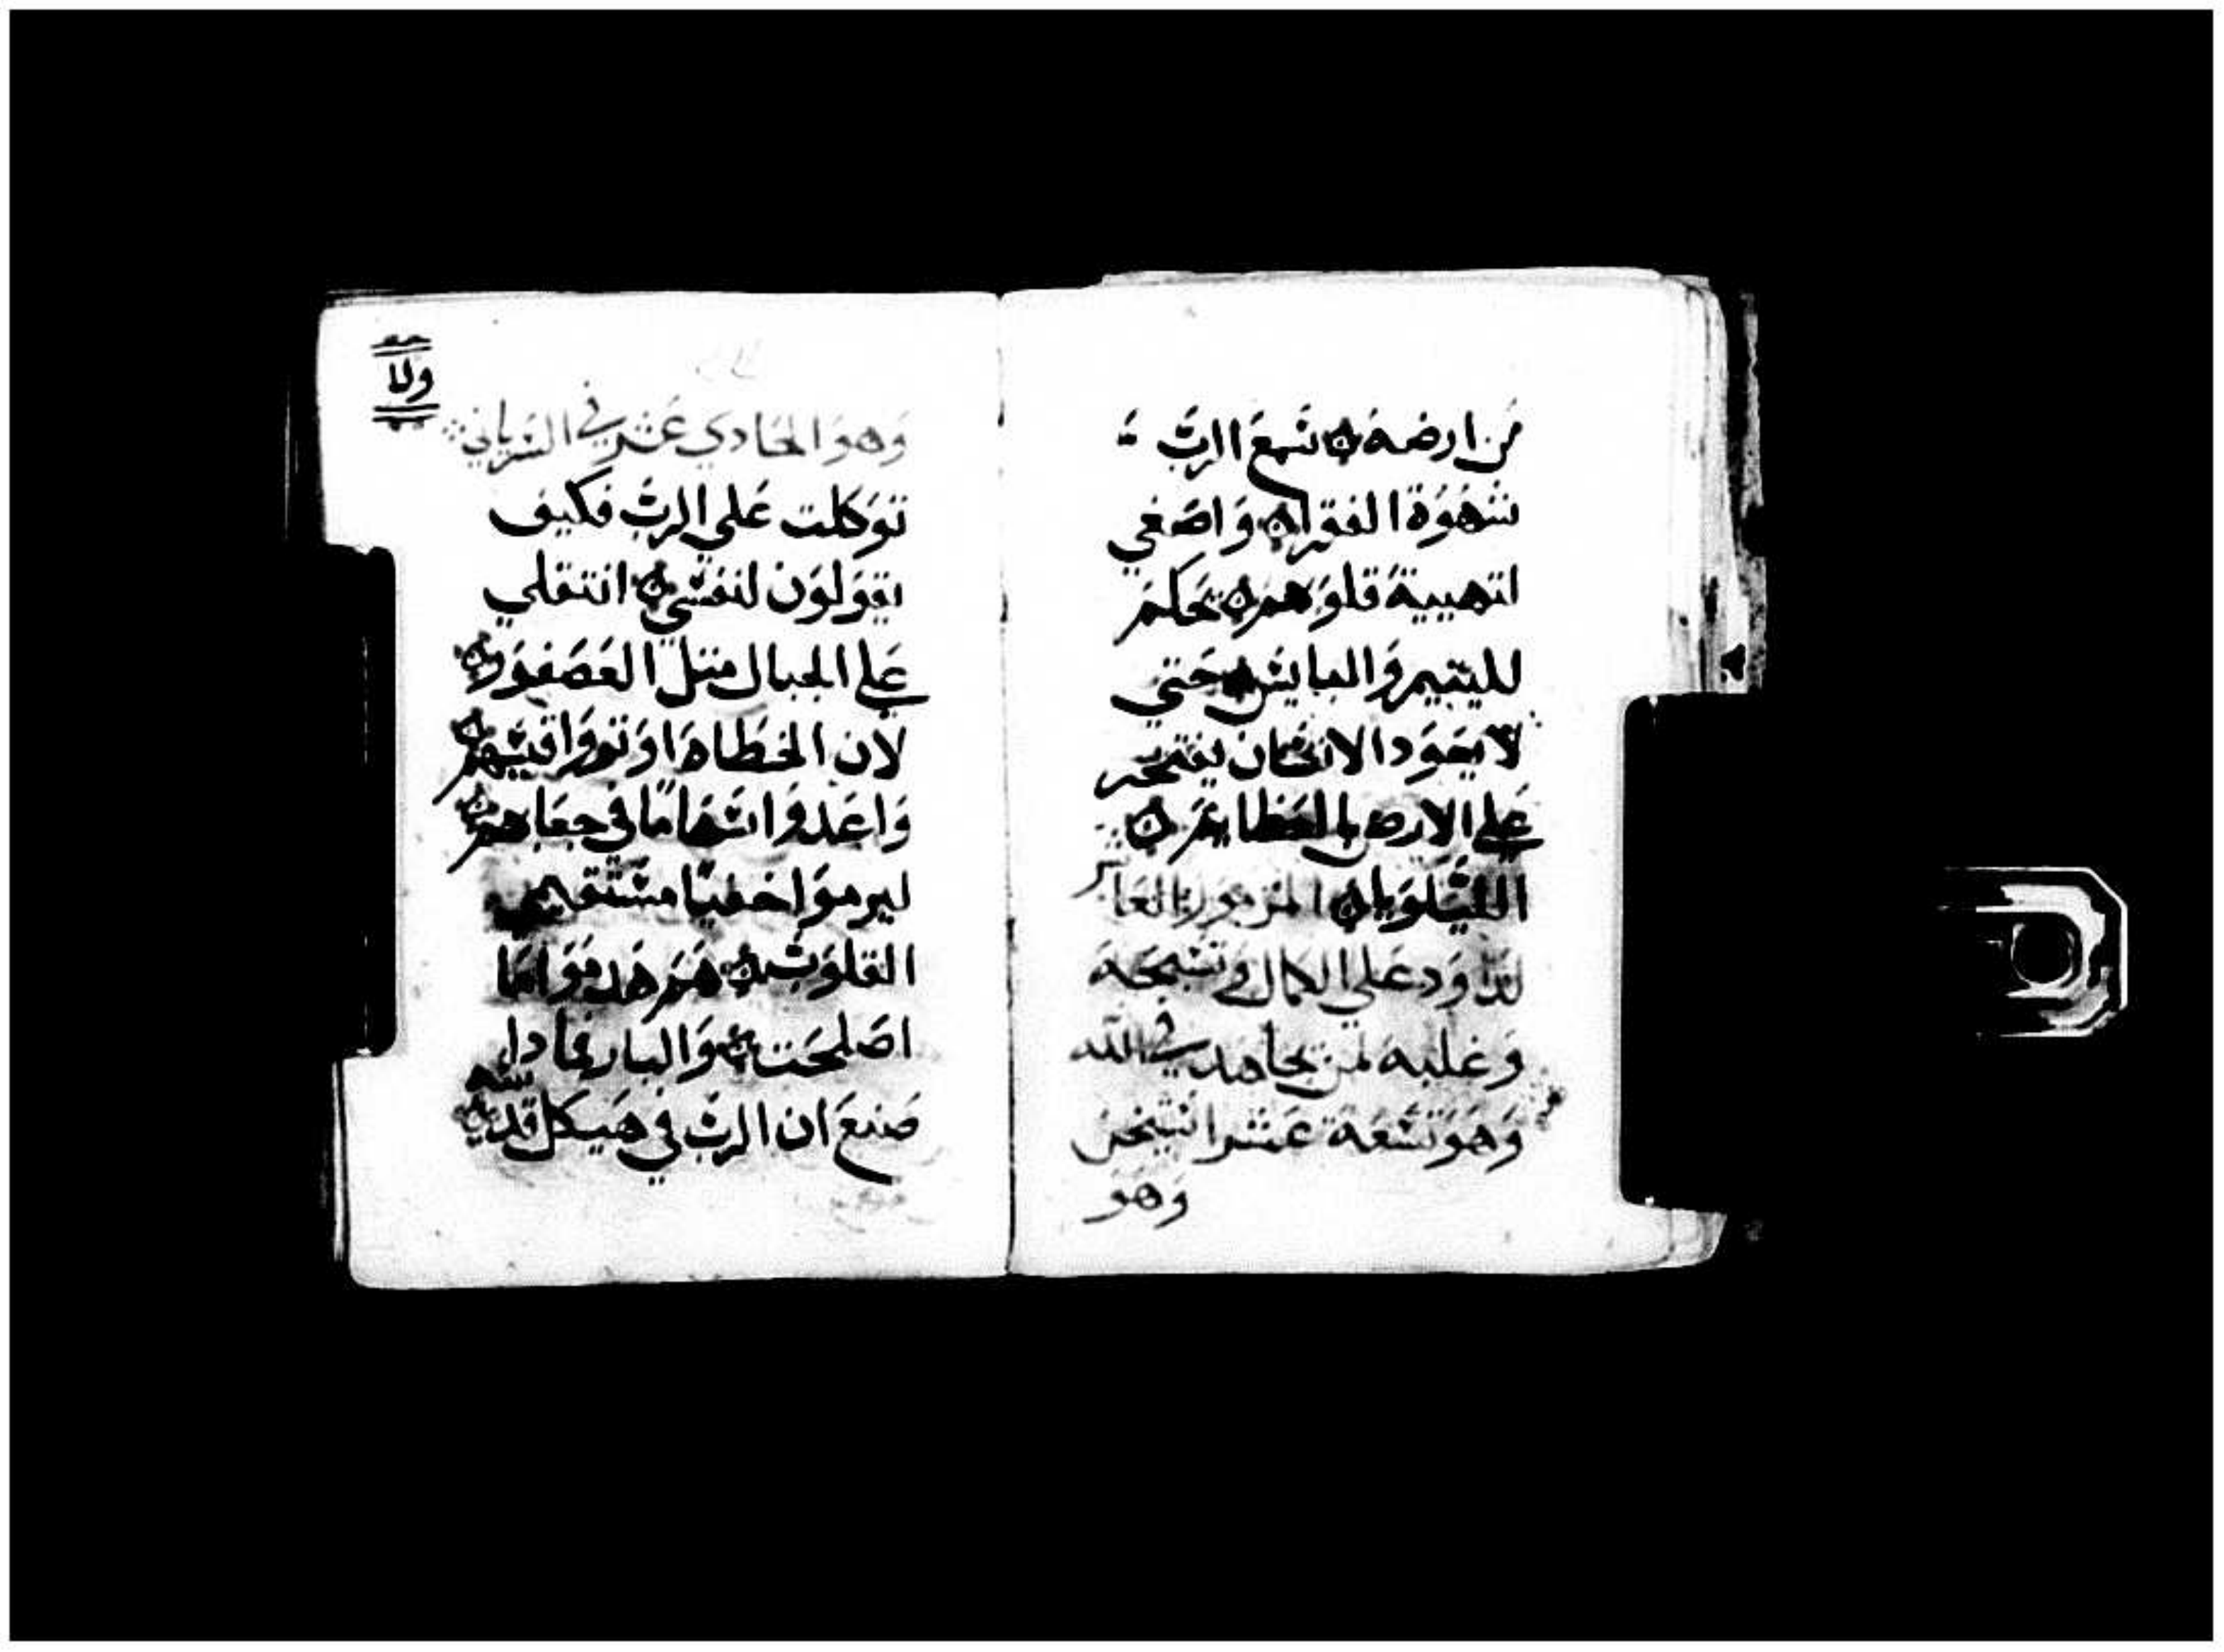 من ارضه سمع الرب
شهوة الفقرا واصغي
لتهيية قلوبهم تحكم
لليتيم والبايس حتي
لا يعود الانسان يفتخر
علي الارض بالعظايم
الليلويا المزمور العاشر
لداود علي الكمال وتسبحه
وغلبه لمن يجاهد في الله
وهو تسعة عشر استيخن
وهو
ولا
وهو الحادي عشر في السرياني
توكلت علي الرب فكيف
تقولون لنفسي انتقلي
علي الجبال متل العصفور
لان الخطاه اوتروا قسيهم
واعدوا سهاما في جعابهم
ليرموا خفيا مستقيمي
القلوب هم هدموا ما
اصلحت والبار فمادا
صنع ان الرب في هيكل قدسه